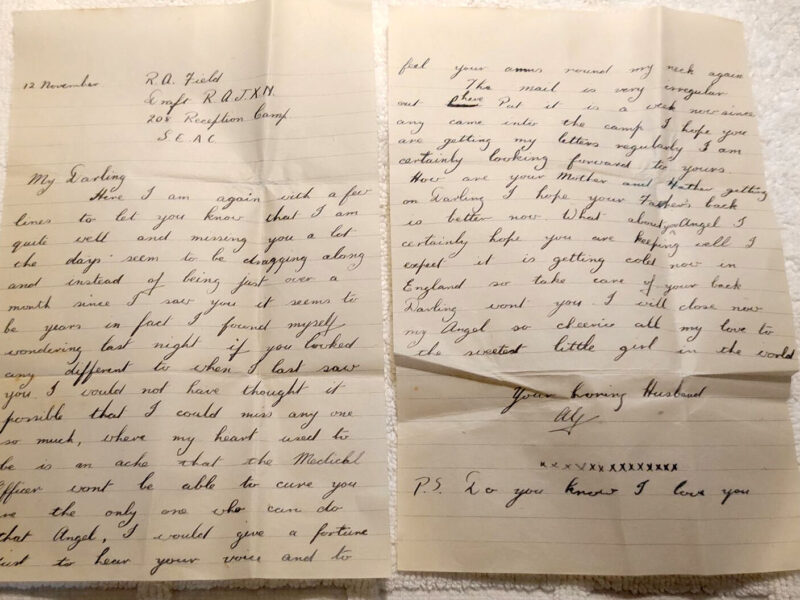 12 November
R.A. Field
Draft R.A.J.X.N.
208 Reception Camp
S.E.A.C.
My Darling
Here I am again with a few
lines to let you know that I am
quite well and missing you a lot
the days seem to be dragging along
and instead of being just over a
month since I saw you it seems to
be years in fact I found myself
wondering last night if you looked
any different to when I last saw
you. I would not have thought it
possible that I could miss any one
so much, where my heart used to
be is an ache that the Medical
Officer wont be able to cure you
re the only one who can do
that Angel, I would give a fortune
just to hear your voice and to
feel your arms round my neck again
The mail is very irregular
out here Pat it is a week now since
any came into the camp I hope you
are getting my letters regularly I am
certainly looking forward to yours.
How are your Mother and Father getting
on Darling I hope your Father's back
is better now. What about you Angel I
certainly hope you are keeping well I
expect it is getting cold now in
England so take care of your back
Darling wont you. I will close now
my Angel so cheerio all my love to
the sweetest little girl in the world
Your loving Husband
Alf
xxxxxxxxxxxxxxxx
P.S. Do you know I love you